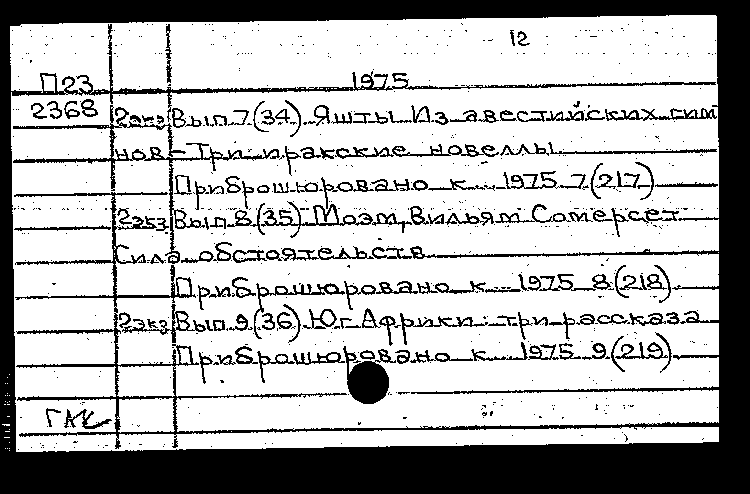 12
П23 1975
2368 2экз Вып 7(34) Яшты Из авестийских гим
нов – Три иракские новеллы
Приброшюровано к... 1975 7(217)
2экз Вып 8(35) Моэм, Вильям Сомерсет
Сила обстоятельств
Приброшюровано к... 1975 8(218)
2экз Вып 9(36) Юг Африки: три рассказа
Приброшюровано к... 1975 9(219)
ГАК